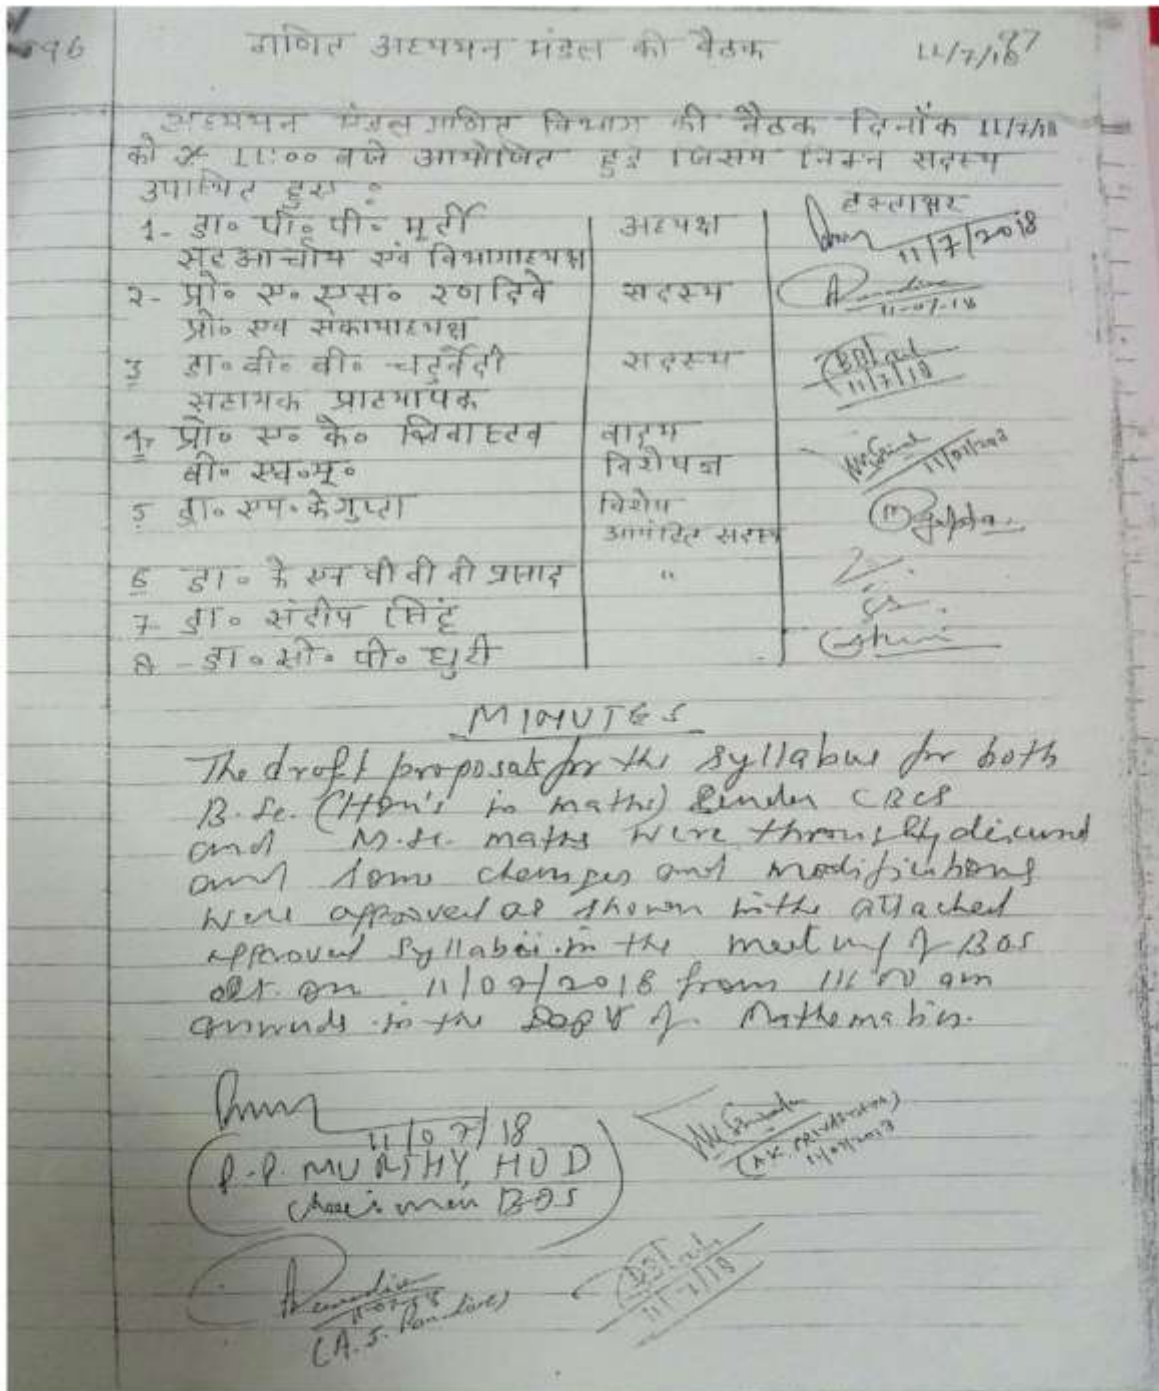 96 गणित अध्ययन मंडल की बैठक 11/7/18 97
अध्ययन मंडल गणित विभाग की बैठक दिनाँक 11/7/18
को 11:00 बजे आयोजित हुई जिसमे निम्न सदस्य
उपास्थित हुए :
हस्ताक्षर
1- डा० पी० पी० मूर्ती अध्यक्ष 11/7/2018
सह आचार्य एवं विभागाध्यक्ष
2- प्रो० ए० एस० रणदिवे सदस्य 11-07-18
प्रो० एवं संकायाध्यक्ष
3 डा० वी० वी० चतुर्वेदी सदस्य 11/7/18
सहायक प्राध्यापक
4- प्रो० ए० के० श्रिवास्टव वाह्य
बी० एच०यू० विशेषज्ञ
5 डा० एम० के गुप्ता विशेष Gupta
आमंत्रित सदस्य
6 डा० के एन वी वी वी प्रसाद "
7- डा० संदीप सिंह
8 - डा० सी० पी० धुरी
MINUTES
The draft proposals for the syllabus for both
B.Sc. (Hon's in maths) under CBCS
and M.Sc. maths were throughly discussed
and some changes and modifications
were approved as shown in the attached
approved syllabii in the meeting of BOS
on 11/07/2018 from 11:00 am
onwards in the Deptt of Mathematics.
11/07/18
(P.P. MURTHY, HOD
Chairman BOS)
(A.K. SRIVASTAVA)
11-07-18
(A.S. Randive)
11/7/18